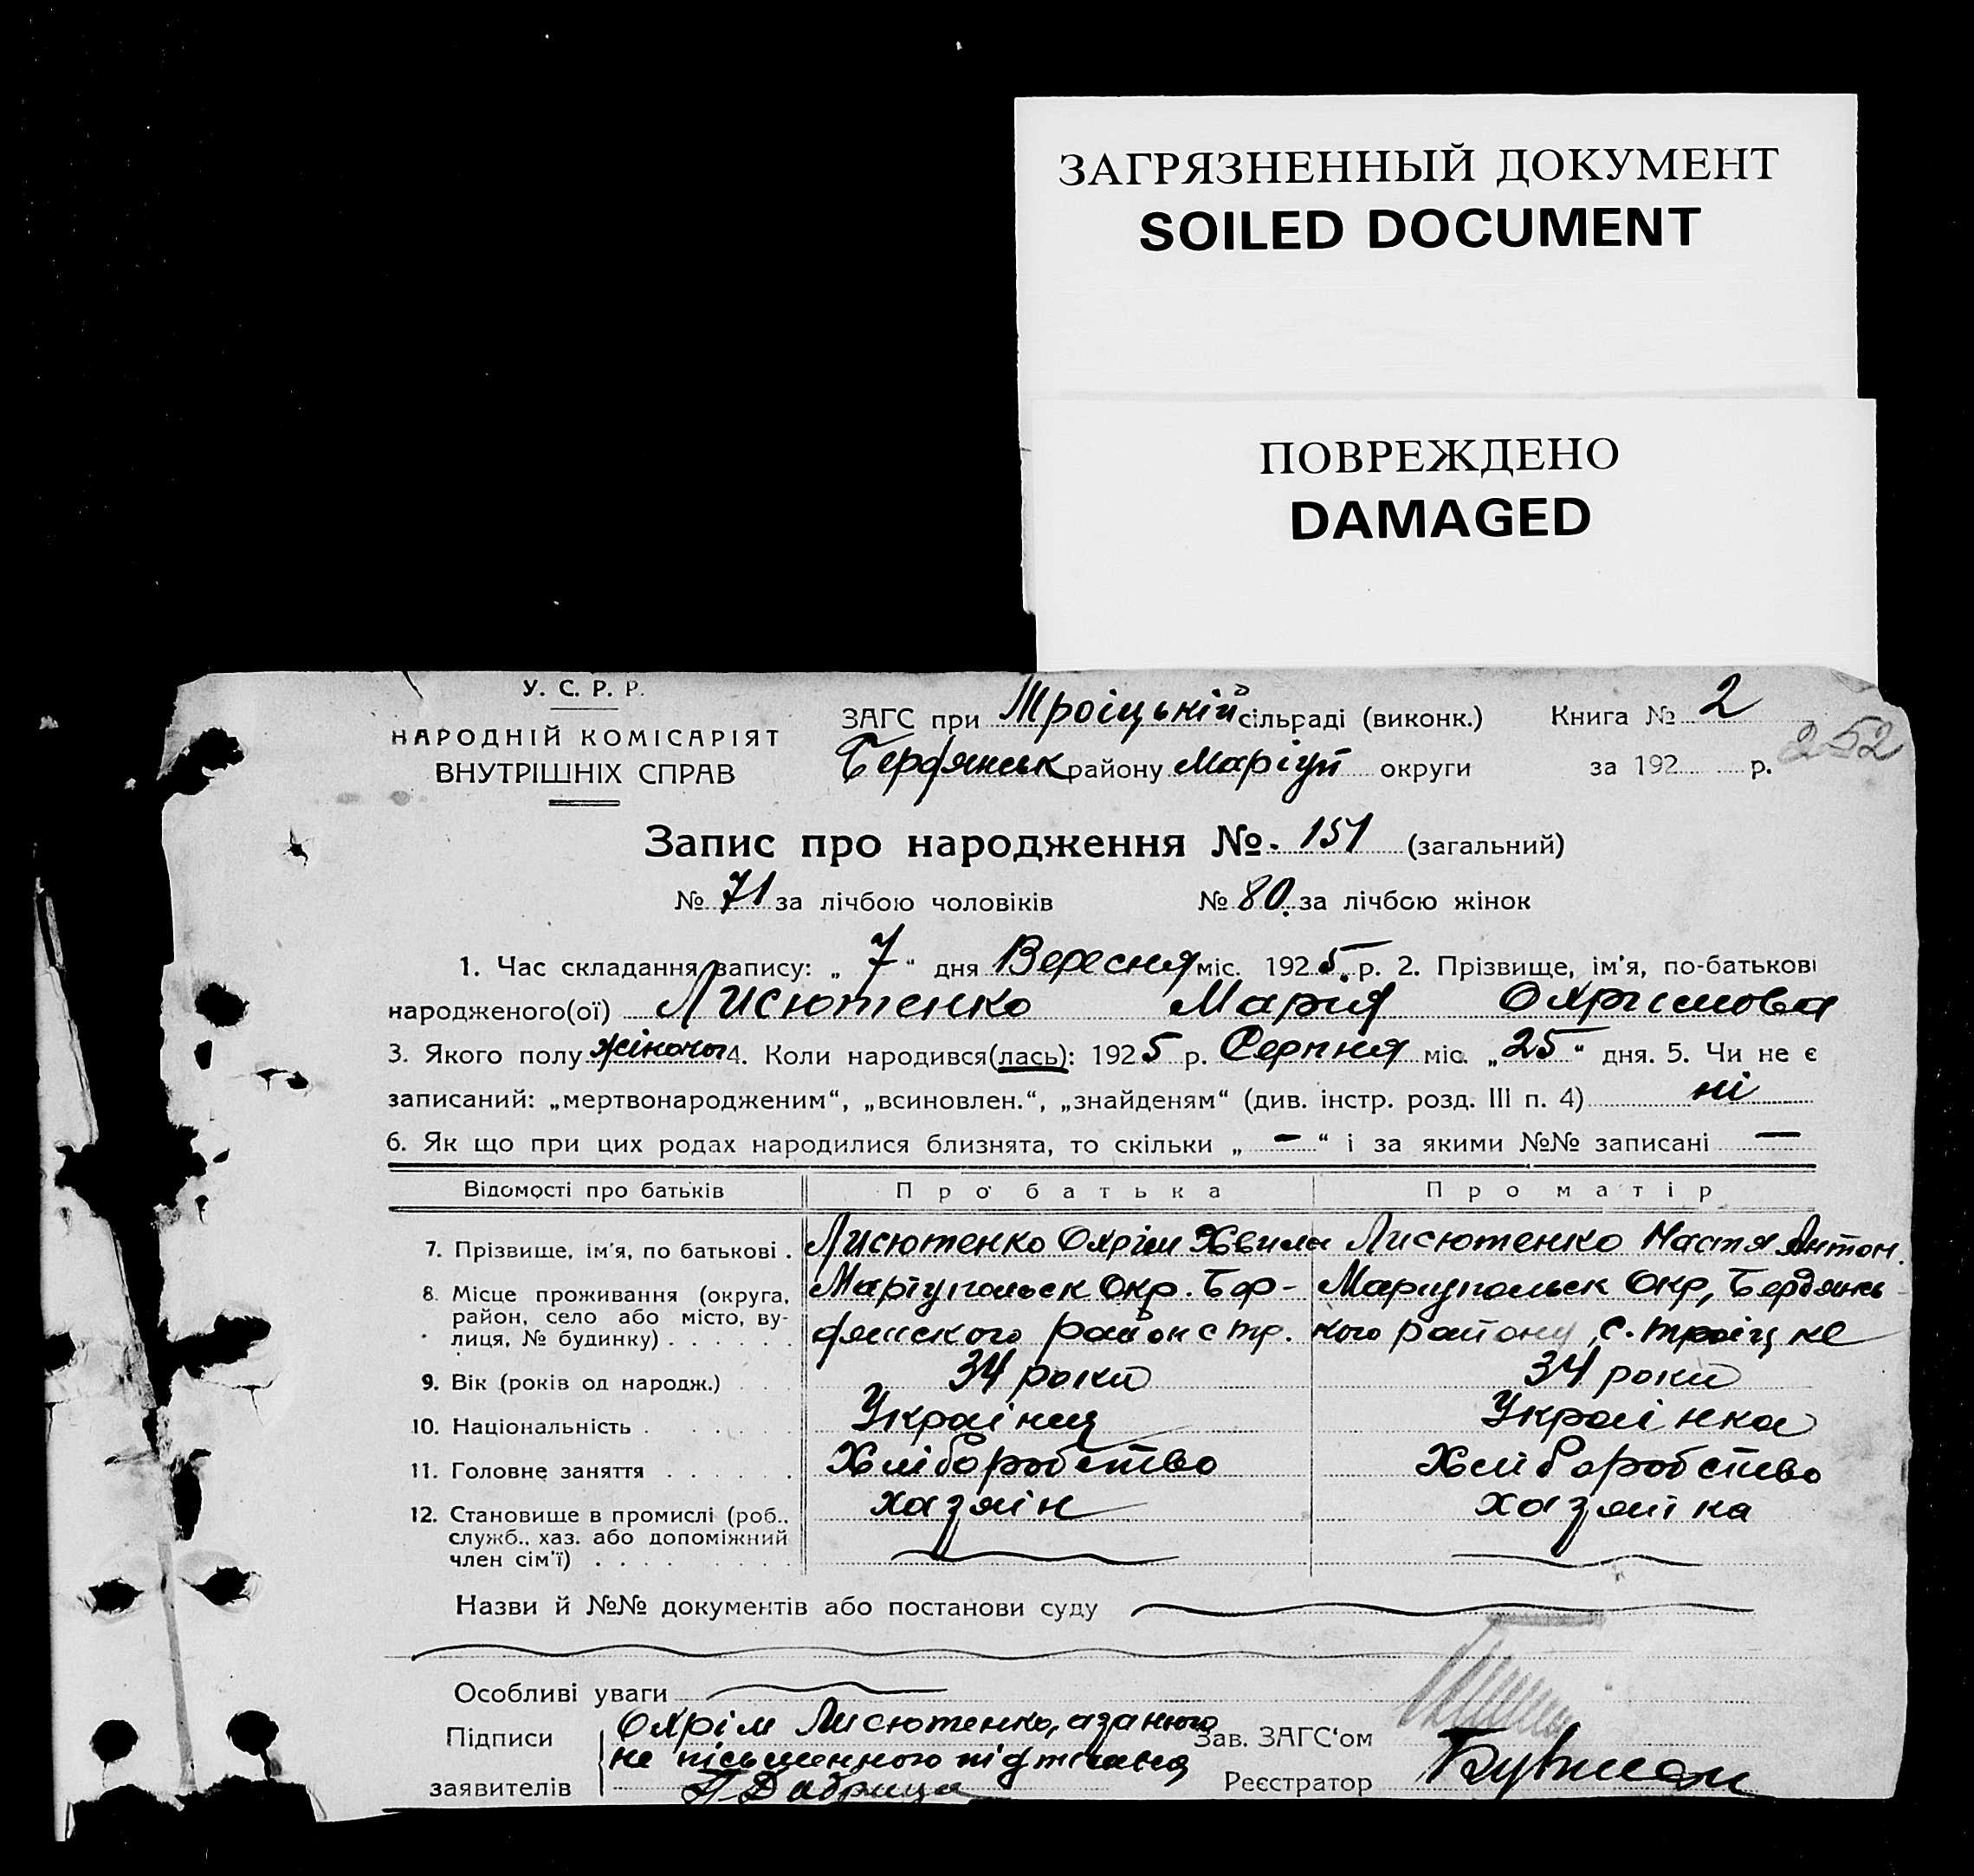 ЗАГРЯЗНЕННЫЙ ДОКУМЕНТ
SOILED DOCUMENT
ПОВРЕЖДЕНО
DAMAGED
У. С. Р. Р.
НАРОДНІЙ КОМІСАРІЯТ
ВНУТРІШНІХ СПРАВ
ЗАГС при Троіцькій сільраді (виконк.)
Бердянськ району Маріуп округи
Книга № 2
за 192 р.
252
Запис про народження №. 151 (загальний)
№ 71 за лічбою чоловіків № 80. за лічбою жінок
1. Час складання запису: „ 7 “ дня Вересня міс. 1925. р. 2. Прізвище, ім'я, по-батькові
народженого(ої) Лисютенко Марія Охримова
3. Якого полу жіночої 4. Коли народився(лась): 1925 р. Серпня міс. „25“ дня. 5. Чи не є
записаний: „мертвонародженим“, „всиновлен.“, „знайденям“ (див. інстр. розд. III п. 4) ні
6. Як що при цих родах народилися близнята, то скільки „ — “ і за якими №№ записані —
Відомості про батьків Про батька Про матір
7. Прізвище, ім'я, по батькові . Лисютенко Охрім Хвилон Лисютенко Настя Антон.
8. Місце проживання (округа, Маріупольск Окр. Бер- Мариупольск Окр, Бердянсь
район, село або місто, ву-
лиця, № будинку) . . . . . . дянского район с тр. кого району, с. троіцке
9. Вік (років од народж.) . . . 34 роки 34 роки
10. Національність . . . . . . Украінец Украінка
11. Головне заняття . . . . . . Хліборобство Хліборобство
12. Становище в промислі (роб., хазяін хазяіка
служб., хаз. або допоміжний
член сім'ї) . . . . . . . . .
Назви й №№ документів або постанови суду
Особливі уваги
Підписи Охрім Лисютенко, а за нього Зав. ЗАГС'ом
не письменного підписався
заявителів Реєстратор